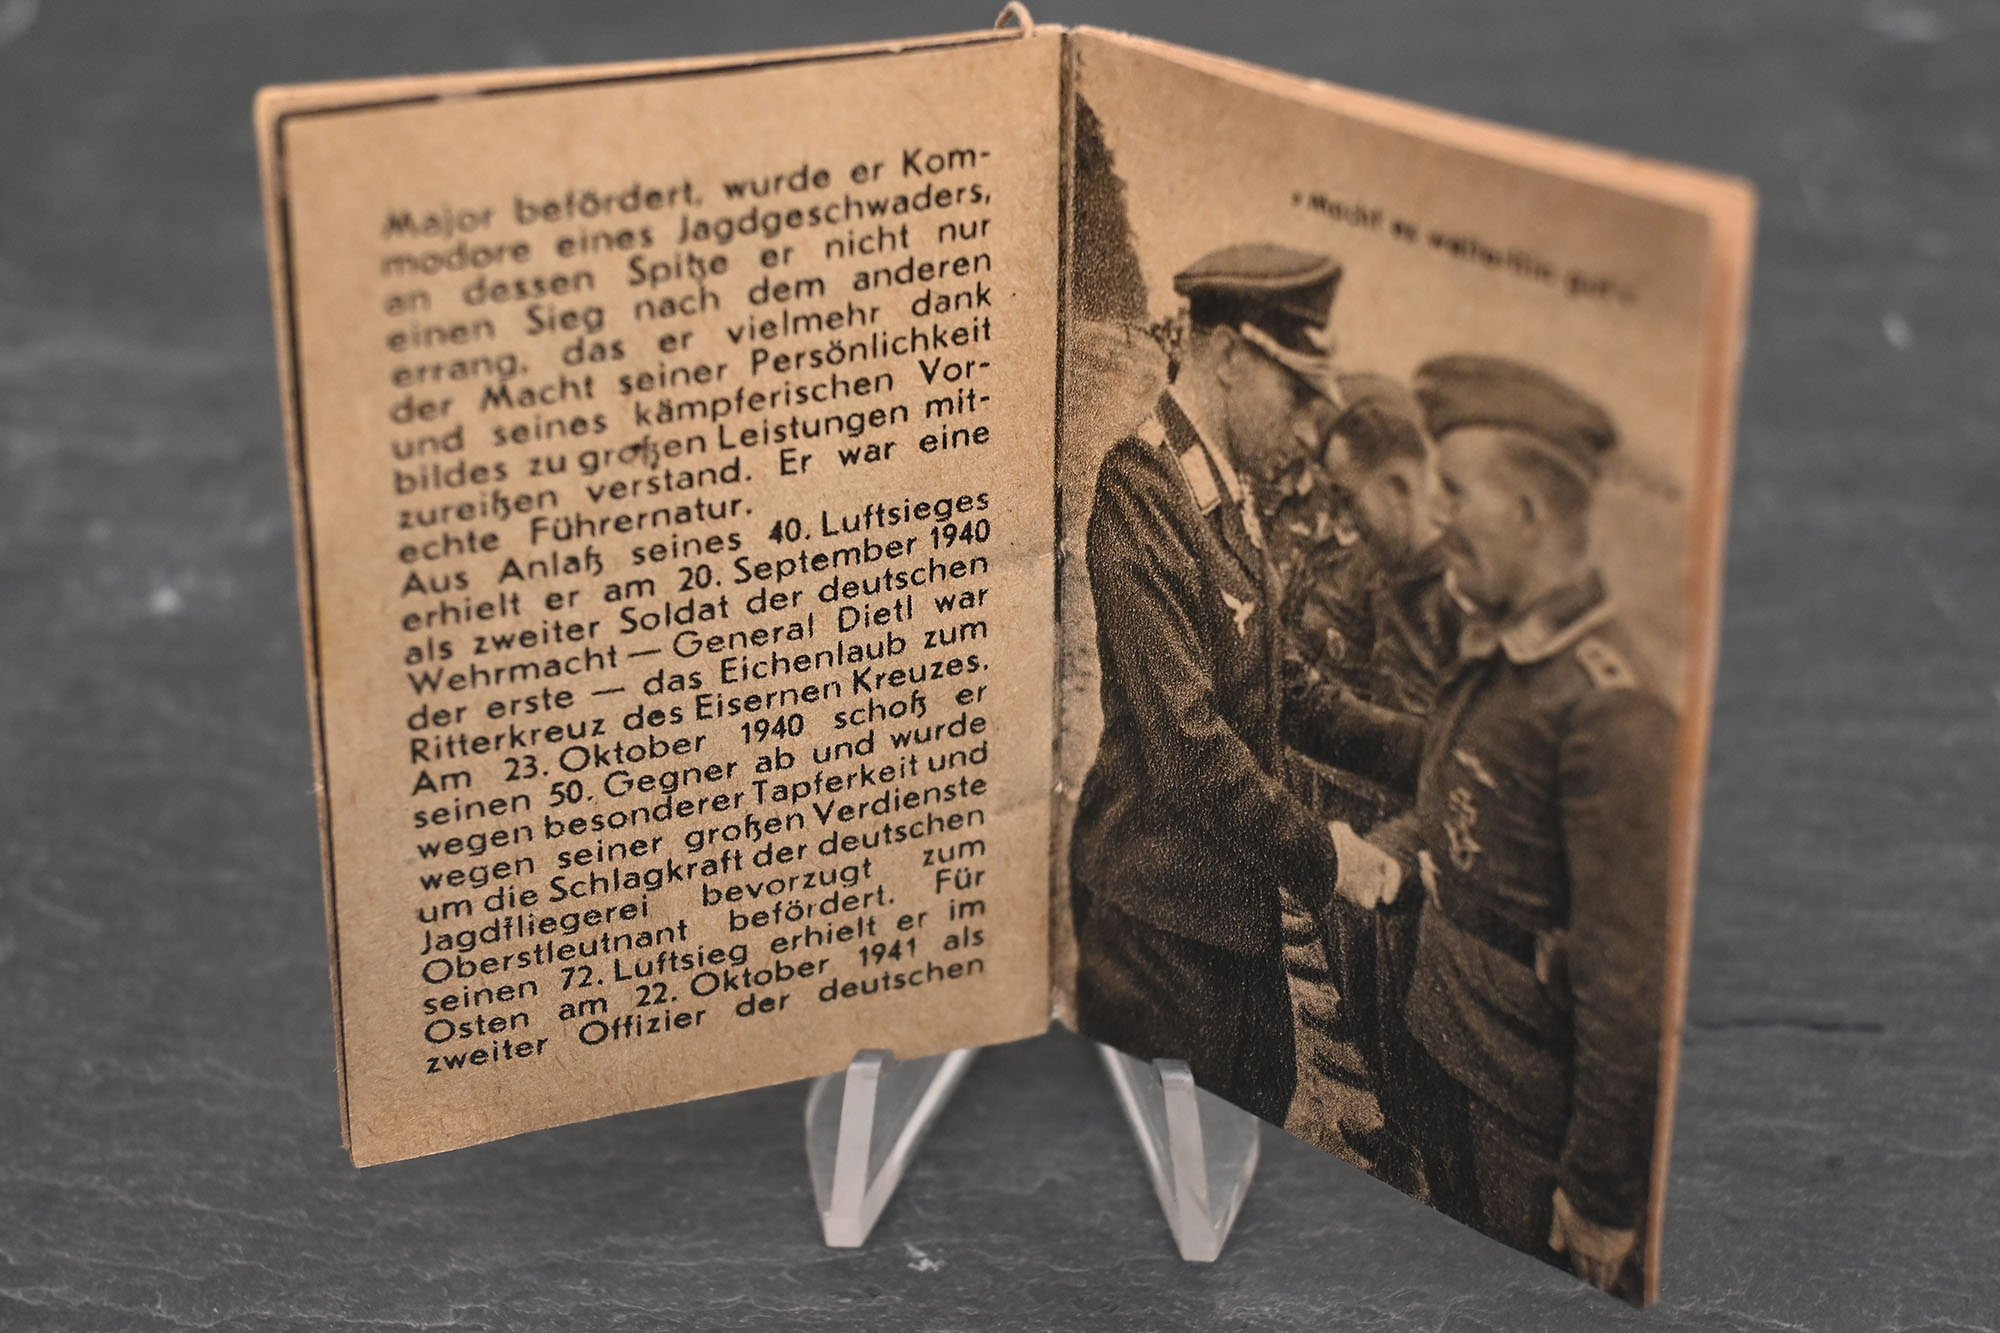 Major befördert, wurde er Kom-
modore eines Jagdgeschwaders,
an dessen Spitze er nicht nur
einen Sieg nach dem anderen
errang, das er vielmehr dank
der Macht seiner Persönlichkeit
und seines kämpferischen Vor-
bildes zu großen Leistungen mit-
zureißen verstand. Er war eine
echte Führernatur.
Aus Anlaß seines 40. Luftsieges
erhielt er am 20. September 1940
als zweiter Soldat der deutschen
Wehrmacht — General Dietl war
der erste — das Eichenlaub zum
Ritterkreuz des Eisernen Kreuzes.
Am 23. Oktober 1940 schoß er
seinen 50. Gegner ab und wurde
wegen besonderer Tapferkeit und
wegen seiner großen Verdienste
um die Schlagkraft der deutschen
Jagdfliegerei bevorzugt zum
Oberstleutnant befördert. Für
seinen 72. Luftsieg erhielt er im
Osten am 22. Oktober 1941 als
zweiter Offizier der deutschen
»Macht es weiterhin gut!«